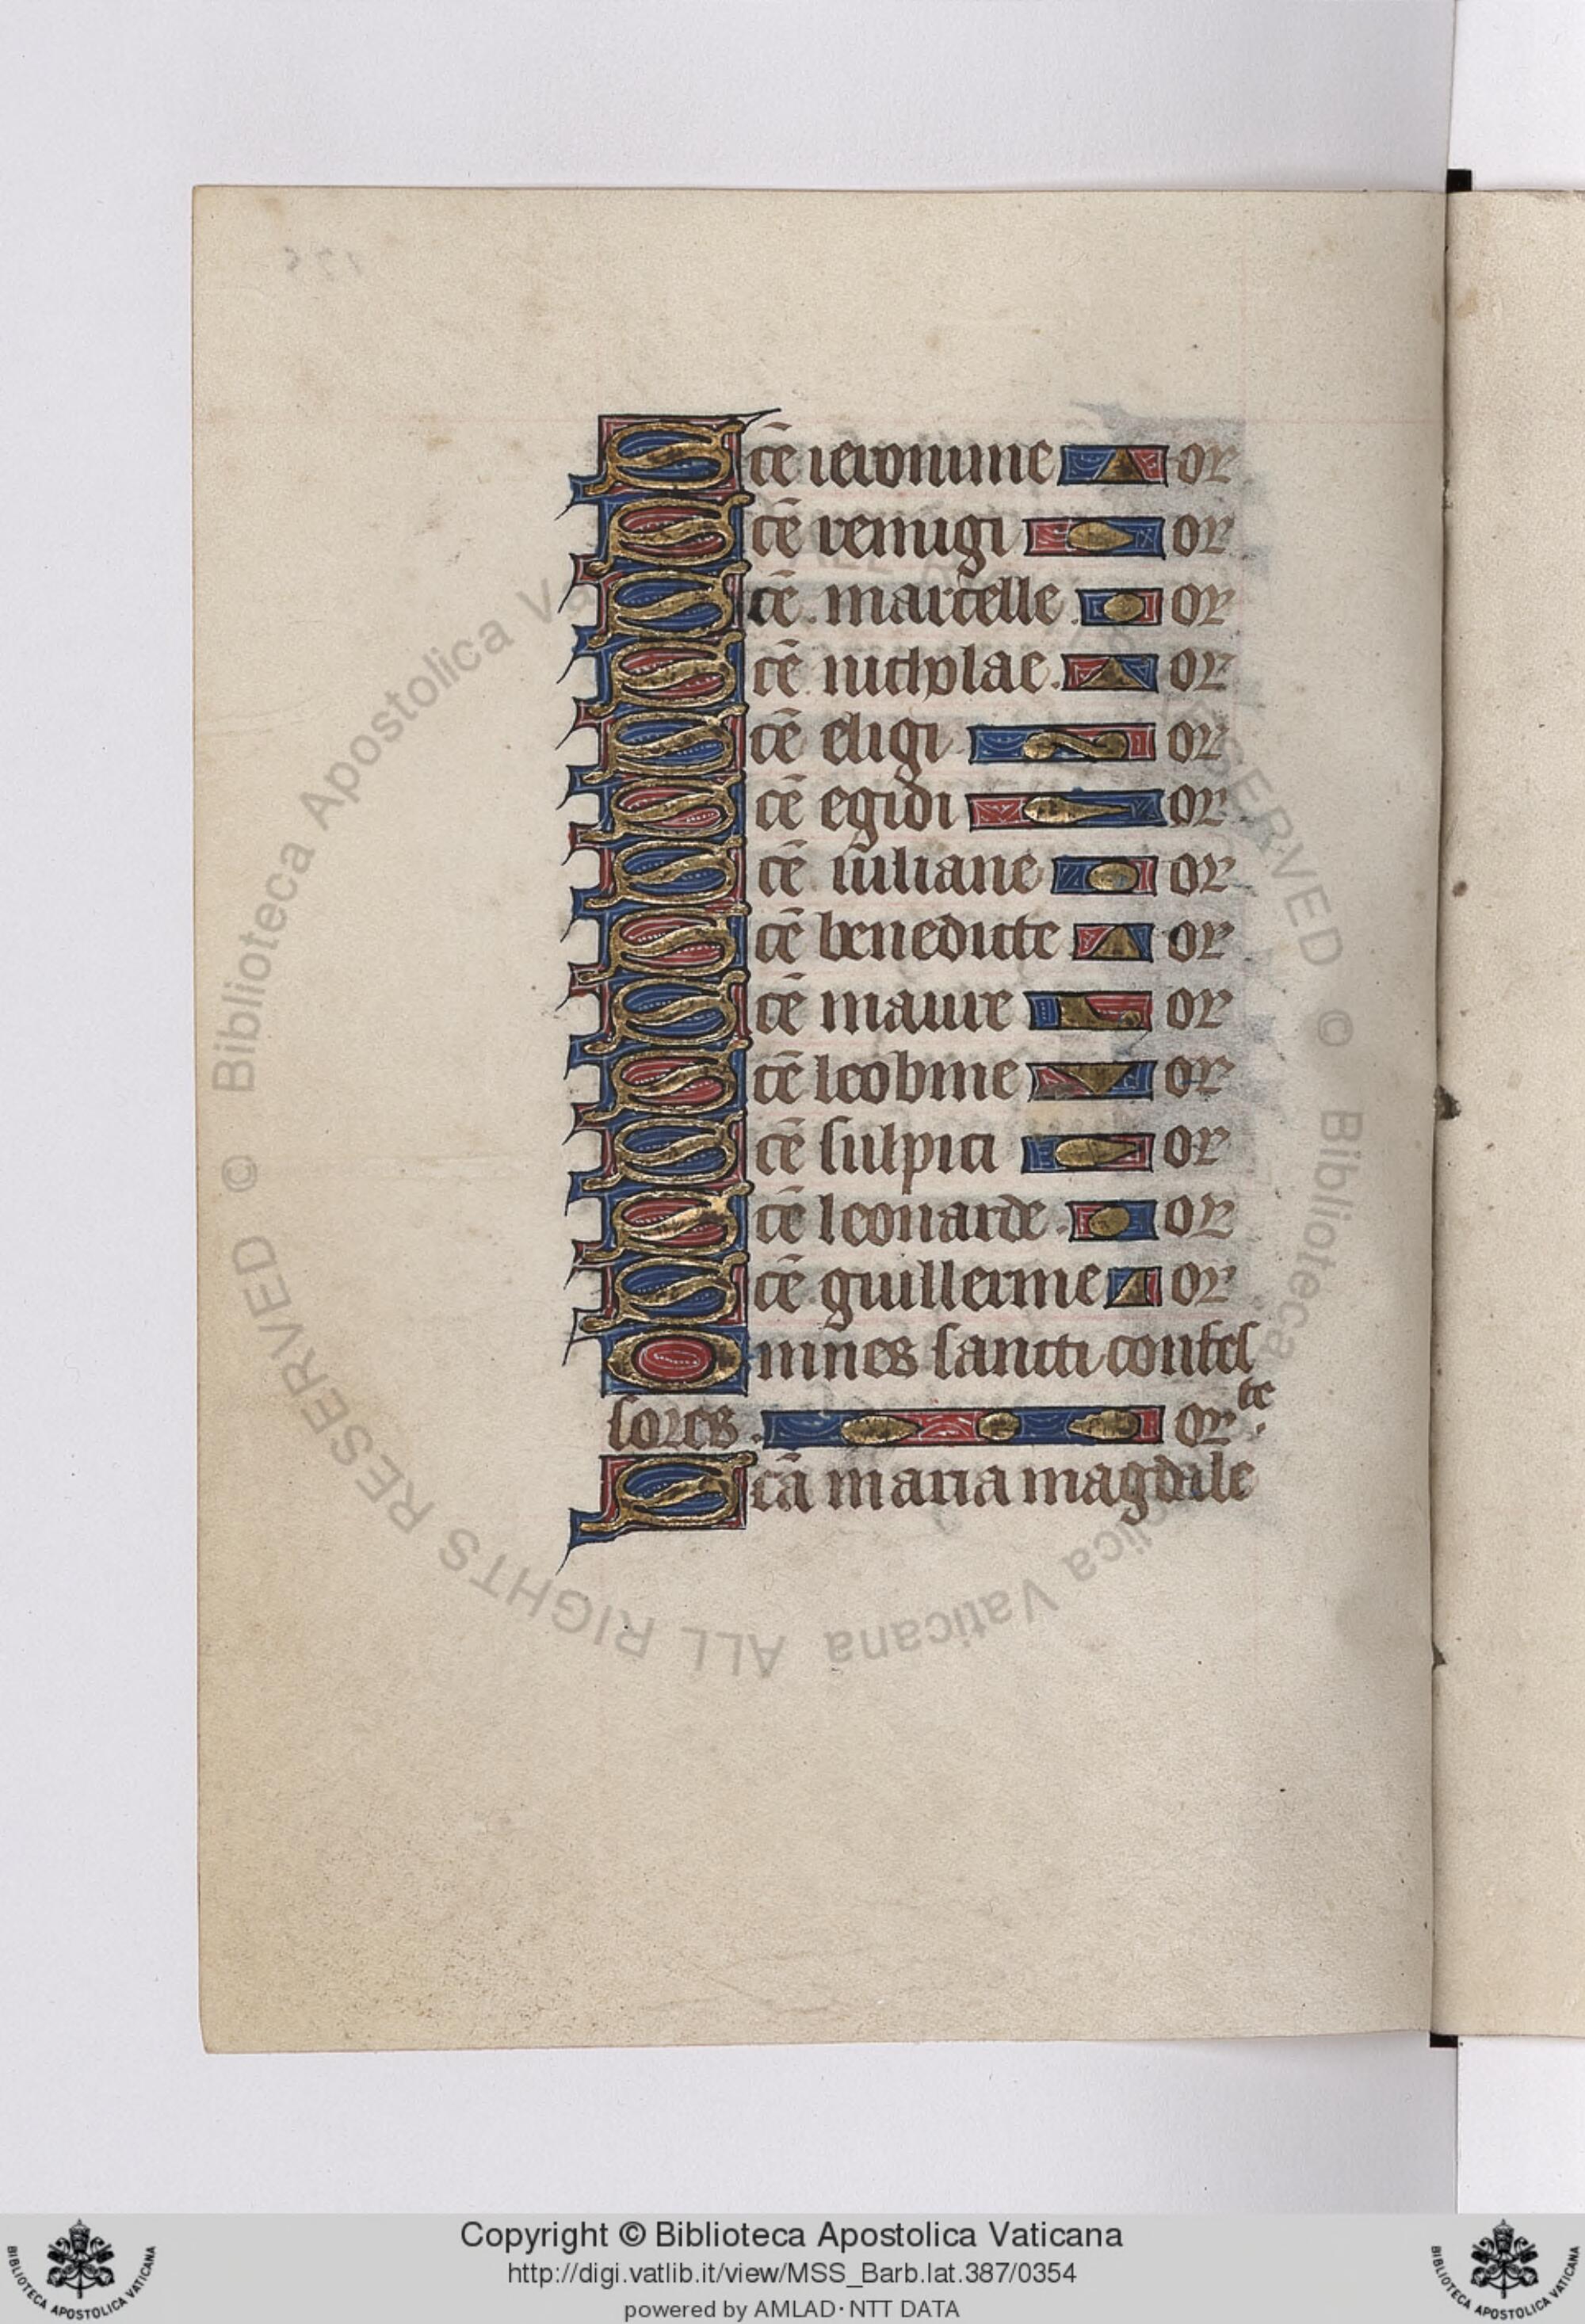 Scē ieronime or
Scē remigi or
Scē marcelle or
Scē nicholae or
Scē eligi or
Scē egidi or
Scē iuliane or
Scē benedicte or
Scē maure or
Scē leobine or
Scē sulpici or
Scē leonarde or
Scē guillerme or
Omnes sancti confes
sores. orte.
Scā maria magdale
© Biblioteca Apostolica Vaticana ALL RIGHTS RESERVED © Biblioteca Apostolica Vaticana ALL RIGHTS RESERVED
Copyright © Biblioteca Apostolica Vaticana
http://digi.vatlib.it/view/MSS_Barb.lat.387/0354
powered by AMLAD·NTT DATA
BIBLIOTECA APOSTOLICA VATICANA
BIBLIOTECA APOSTOLICA VATICANA